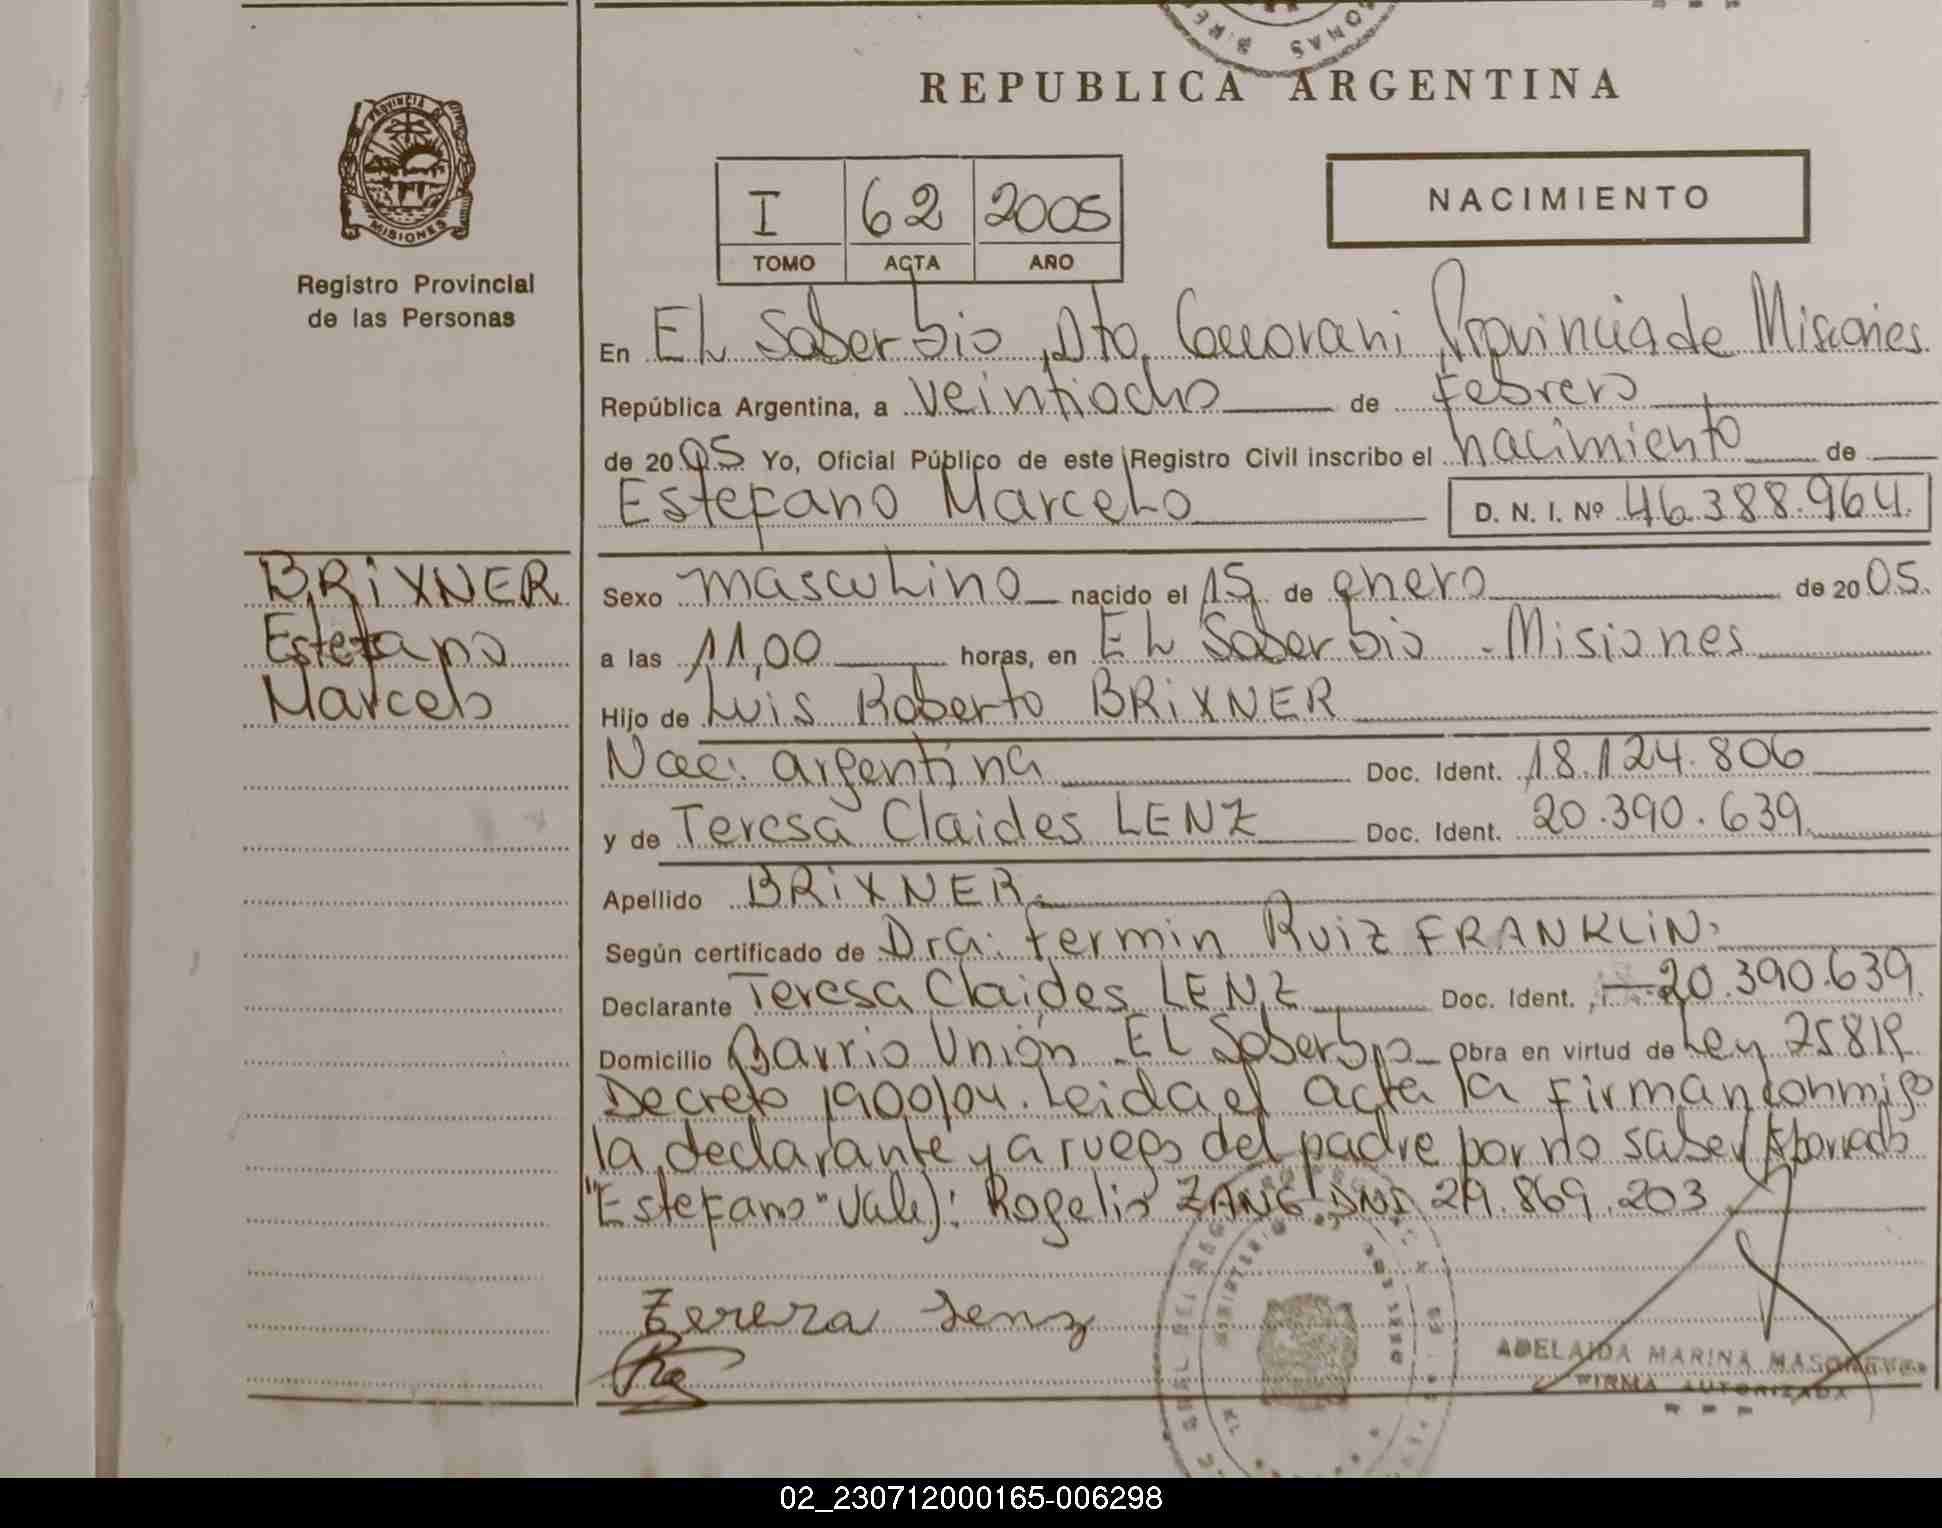 REPUBLICA ARGENTINA
PROVINCIA DE
MISIONES
Registro Provincial
de las Personas
I 62 2005
TOMO ACTA AÑO
NACIMIENTO
En EL Soberbio, Dto. Provincia de Misiones
República Argentina, a veintiocho de Febrero
de 2005 Yo, Oficial Público de este Registro Civil inscribo el nacimiento de
Estefano Marcelo D. N. I. Nº 46.388.964.
BRiXNER
Estefano
Marcelo
Sexo masculino nacido el 15 de enero de 2005.
a las 11,00 horas, en EL Soberbio - Misiones
Hijo de Luis Roberto BRiXNER
Nac: argentina Doc. Ident. 18.124.806
y de Teresa Claides LENZ Doc. Ident. 20.390.639
Apellido BRiXNER.
Según certificado de Dra: Fermin Ruiz FRANKLiN.
Declarante Teresa Claides LENZ Doc. Ident. 20.390.639
Domicilio Barrio Unión - EL Soberbio Obra en virtud de Ley 25819
Decreto 1900/04. Leida el acta la firman conmigo
la declarante y a ruego del padre por no saber
"Estefano" Vale): Rogelio ZANG DNI 29.869.203
Tereza Lenz
ADELAIDA MARINA
FIRMA AUTORIZADA
02_230712000165-006298